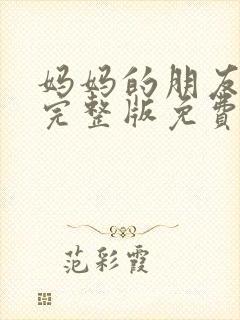 妈妈的朋友
完整版免費
范彩霞